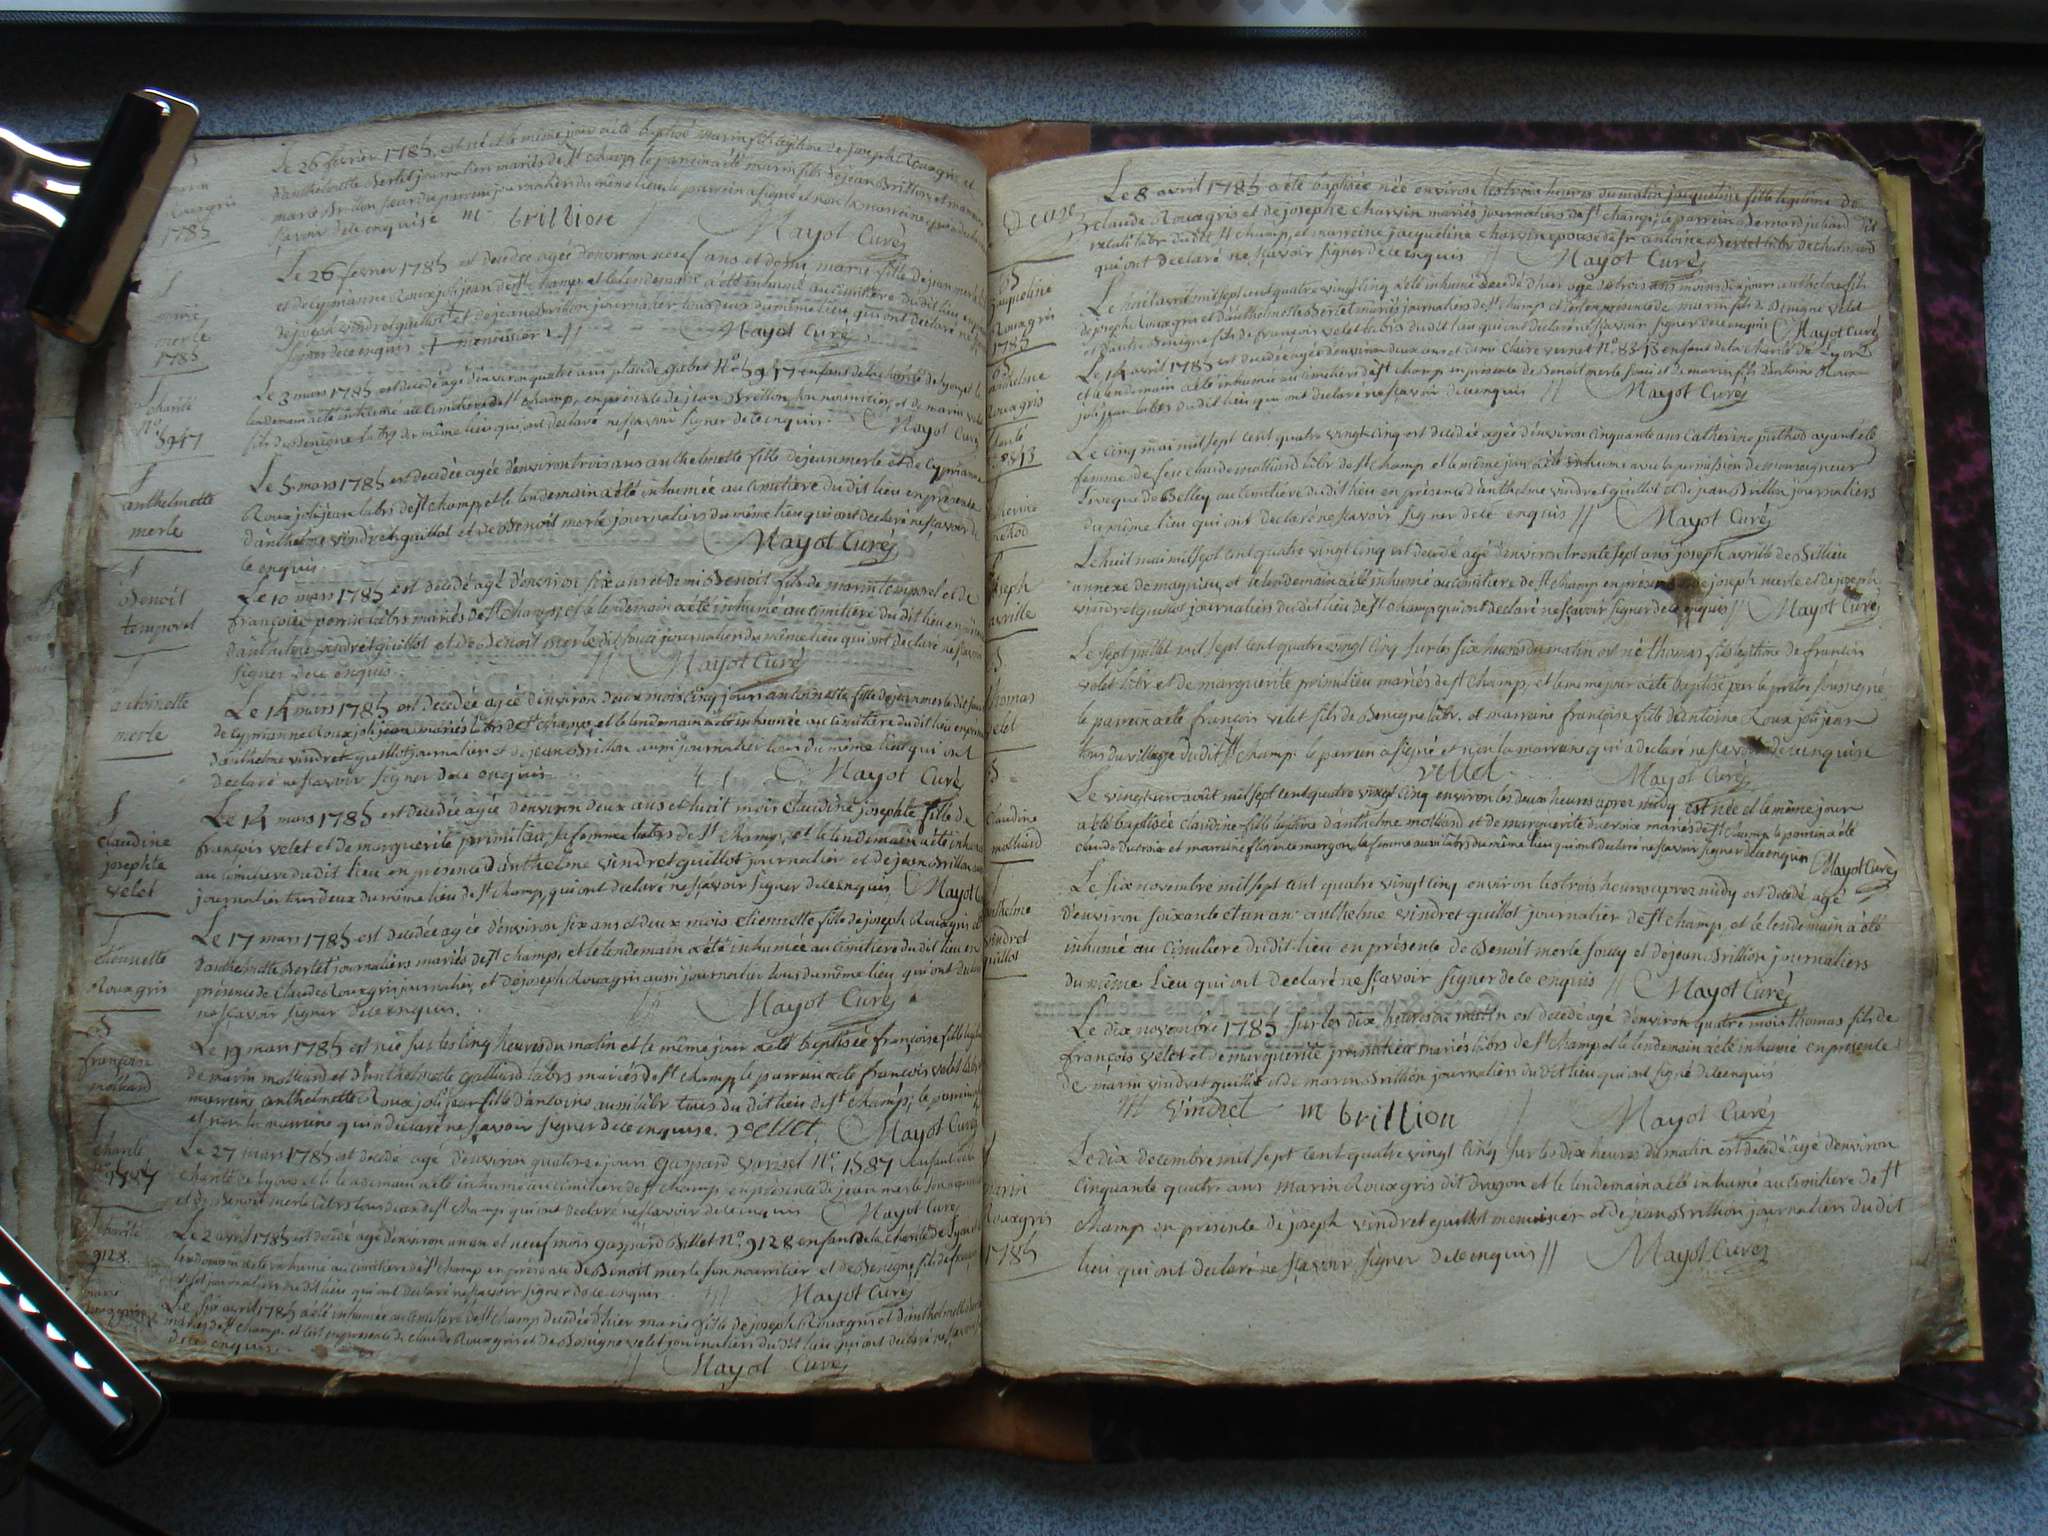 Rouxgris
1785
Le 26 fevrier 1785 est né et le même jour a été baptisé marin fils legitime de joseph Rouxgris et
d'anthelmette Bertet journaliers mariés de St champ, le parrein a été marin fils de jean Brillion et marreine
marie Brillion soeur du parrein journaliers du même lieu, le parrein a signé et non la marreine qui a declaré
sçavoir de ce enquise m brillion Mayot Curé
marie
merle
1785
Le 26 fevrier 1785 est decedée agée d'environ neuf ans et demi marie fille de jean merle
et de cyprianne Roux joli jean de St champ et le lendemain a été inhumé au cimitiere du dit lieu en
de joseph vindret guillot et de jean Brillion journalier tous deux du même lieu, qui ont declaré ne
signer de ce enquis + menuisier // Mayot Curé
charité
N° 5947
Le 3 mars 1785 est decedé agé d'environ quatre ans placide gabet N° 5947 enfant de la charité de Lyon, et le
lendemain a été inhumé au cimitiere de St champ, en presence de jean Brillion son nourricier, et de marin velet
fils de Benigne labr du même lieu qui ont declaré ne sçavoir signer de ce enquis. Mayot Curé
anthelmette
merle
Le 5 mars 1785 est decedée agée d'environ trois ans anthelmette fille de jean merle et de Cyprianne
Roux joli jean labrs de St champ, et le lendemain a été inhumée au cimitiere du dit lieu en présence
d'anthelme vindret guillot et de Benoit merle journaliers du même lieu qui ont declaré ne sçavoir de
ce enquis. Mayot Curé
Benoit
temporel
Le 10 mars 1785 est decedé agé d'environ six ans et demi Benoit fils de marin temporel et de
françoise perrin labrs mariés de St Champ, et le lendemain a été inhumé au cimitiere du dit lieu en
d'anthelme vindret guillot et de Benoit merle dit souci journaliers du même lieu qui ont declaré ne sçavoir
signer de ce enquis // Mayot Curé
antoinette
merle
Le 14 mars 1785 est decedée agée d'environ deux mois cinq jours antoinette fille de jean merle
de Cyprianne Roux joli jean mariés labrs de St champ, et le lendemain a été inhumée au cimitiere du dit lieu en
d'anthelme vindret guillot journalier et de jean Brillion aussi journalier tous du même lieu qui ont
declaré ne sçavoir signer de ce enquis Mayot Curé
claudine
josephte
velet
Le 14 mars 1785 est decedée agée d'environ deux ans et huit mois Claudine josephte fille de
françois velet et de marguerite primilieu sa femme labrs de St champ, et le lendemain a été inhumée
au cimitiere du dit lieu en presence d'anthelme vindret guillot journalier et de jean Brillion aussi
journalier tous deux du même lieu de St champ, qui ont declaré ne sçavoir signer de ce enquis Mayot Curé
etiennette
Rouxgris
Le 17 mars 1785 est decedée agée d'environ six ans et deux mois etiennette fille de joseph Rouxgris et
d'anthelmette Bertet journaliers mariés de St champ, et le lendemain a été inhumée au cimitiere du dit lieu en
présence de Claude Rouxgris journalier, et de joseph Rouxgris aussi journalier tous du même lieu, qui ont declaré
ne sçavoir signer de ce enquis. // Mayot Curé
B
françoise
molliard
Le 19 mars 1785 est née sur les cinq heures du matin et le même jour a été baptisée françoise fille legitime
de marin molliard et d'anthelmette galliard labrs mariés de St champ, le parrein a été françois velet labr
marreine anthelmette Roux joli jean fille d'antoine aussi labr tous du dit lieu de St champ; le parrein
et non la marreine qui a declaré ne sçavoir signer de ce enquise. vellet. Mayot Curé
charité
N° 1587
Le 27 mars 1785 est decedé agé d'environ quatorze jours gaspard N° 1587 enfant de la
charité de Lyon, et le lendemain a été inhumé au cimitiere de St champ en présence de jean merle son
et de Benoit merle labrs tous deux de St champ qui ont declaré ne sçavoir de ce enquis Mayot Curé
charité
9128.
Le 2 avril 1785 est decedé agé d'environ un an et neuf mois gaspard Billet N° 9128 enfant de la Charité de Lyon et le
lendemain a été inhumé au cimitiere de St champ en présence de Benoit merle son nourricier et de Benigne fils de françois
velet journaliers du dit lieu qui ont declaré ne sçavoir signer de ce enquis. // Mayot Curé
marie
Rouxgris
Le six avril 1785 a été inhumée au cimitiere de St champ decedée d'hier marie fille de joseph Rouxgris et d'anthelmette Bertet
mariés de St champ, et c'est en presence de claude Rouxgris et de Benigne velet journaliers du dit lieu qui ont declaré ne sçavoir
de ce enquis. // Mayot Curé
Deuxe
B
jaqueline
Rouxgris
1785
Le 8 avril 1785 a été baptisée née environ les trois heures du matin jaqueline fille legitime de
claude Rouxgris et de josephe Charvin mariés journaliers de St champ, le parrein Bernard juband dit
labr du dit St champ, et marreine jacqueline charvin epouse de Sr antoine Bertet labr de chatonod
qui ont declaré ne sçavoir signer de ce enquis // Mayot Curé
anthelme
Rouxgris
Le huit avril mil sept cent quatre vingt cinq a été inhumé decedé d'hier agé de trois ans moins six jours anthelme fils
de joseph Rouxgris et d'anthelmette Bertet mariés journaliers de St champ et c'est en presence de marin fils de Benigne velet
et d'autre Benigne fils de françois velet labrs du dit lieu qui ont declaré ne sçavoir signer de ce enquis Mayot Curé
charité
8343
Le 14 avril 1785 est decedée agée d'environ deux ans et demi Claire vernet N° 8343 enfant de la Charité de Lyon
et le lendemain a été inhumée au cimitiere de St champ en presence de Benoit merle souci et de marin fils d'antoine Roux
joli jean labrs du dit lieu qui ont declaré ne sçavoir de ce enquis // Mayot Curé
catherine
pethod
Le cinq mai mil sept cent quatre vingt cinq est decedée agée d'environ cinquante ans Catherine pethod ayant été
femme de feu claude molliard labr de St champ et le même jour a été inhumé avec la permission de monseigneur
L'eveque de Belley au cimitiere du dit lieu en présence d'anthelme vindret guillot et de jean Brillion journaliers
du même lieu qui ont declaré ne sçavoir signer de ce enquis // Mayot Curé
joseph
avrille
Le huit mai mil sept cent quatre vingt cinq est decedé agé d'environ trente sept ans joseph avrille de Billieu
annexe de magnieu, et le lendemain a été inhumé au cimitiere de St champ en présence de joseph merle et de joseph
vindret guillot journaliers du dit lieu de St champ qui ont declaré ne sçavoir signer de ce enquis // Mayot Curé
B
thomas
velet
Le sept juillet mil sept cent quatre vingt cinq sur les six heures du matin est né thomas fils legitime de françois
velet labr et de marguerite primilieu mariés de St champ, et le meme jour a été baptisé par le prêtre soussigné
le parrein a été françois velet fils de Benigne labr. et marreine françoise fille d'antoine Roux joli jean
tous du village du dit St champ. le parrein a signé et non la marreine qui a declaré ne sçavoir de ce enquise
vellet Mayot Curé
B
claudine
molliard
Le vingt un août mil sept cent quatre vingt cinq environ les deux heures aprez midy est née et le même jour
a été baptisée claudine fille legitime d'anthelme molliard et de marguerite ducroix mariés de St champ le parrein a été
claude Ducroix et marreine florence margon sa femme aussi labrs du même lieu qui ont declaré ne sçavoir signer de ce enquis Mayot Curé
anthelme
vindret
guillot
Le six novembre mil sept cent quatre vingt cinq environ les trois heures aprez midy est decedé agé
d'environ soixante et un an anthelme vindret guillot journalier de St champ, et le lendemain a été
inhumé au cimitiere du dit lieu en présence de Benoit merle soucy et de jean Brillion journaliers
du même lieu qui ont declaré ne sçavoir signer de ce enquis // Mayot Curé
Le dix novembre 1785 sur les dix heures du matin est decedé agé d'environ quatre mois thomas fils de
françois velet et de marguerite primilieu mariés labrs de St champ et le lendemain a été inhumé en presence
de marin vindret guillot et de marin Brillion journaliers du dit lieu qui ont signé de ce enquis
M vindret m brillion / Mayot Curé
marin
Rouxgris
1785
Le dix decembre mil sept cent quatre vingt cinq sur les dix heures du matin est decedé agé d'environ
cinquante quatre ans marin Rouxgris dit dragon et le lendemain a été inhumé au cimitiere de St
champ en présence de joseph vindret guillot menuisier et de jean Brillion journaliers du dit
lieu qui ont declaré ne sçavoir signer de ce enquis // Mayot Curé